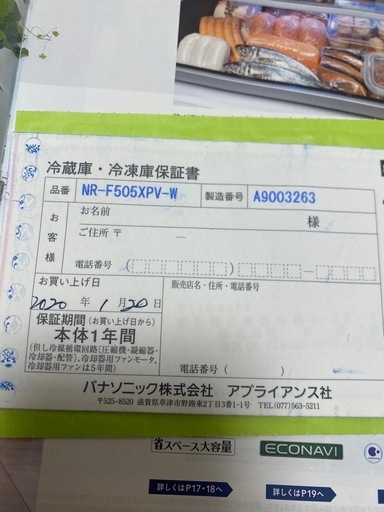 冷蔵庫・冷凍庫保証書
品番 NR-F505XPV-W 製造番号 A9003263
お客様
お名前 様
ご住所 〒 ―
電話番号 ( ) ―
お買い上げ日
2020 年 1 月 20 日
販売店名・住所・電話番号
保証期間 (お買い上げ日から)
本体1年間
(但し冷媒循環回路〔圧縮機・凝縮器・
冷却器・配管〕、冷却器用ファンモータ、
冷却器用ファンは5年間)
電話番号 ( )
パナソニック株式会社 アプライアンス社
〒525-8520 滋賀県草津市野路東2丁目3番1-1号 TEL (077)563-5211
省スペース大容量
ECONAVI
詳しくはP17・18へ
詳しくはP19へ